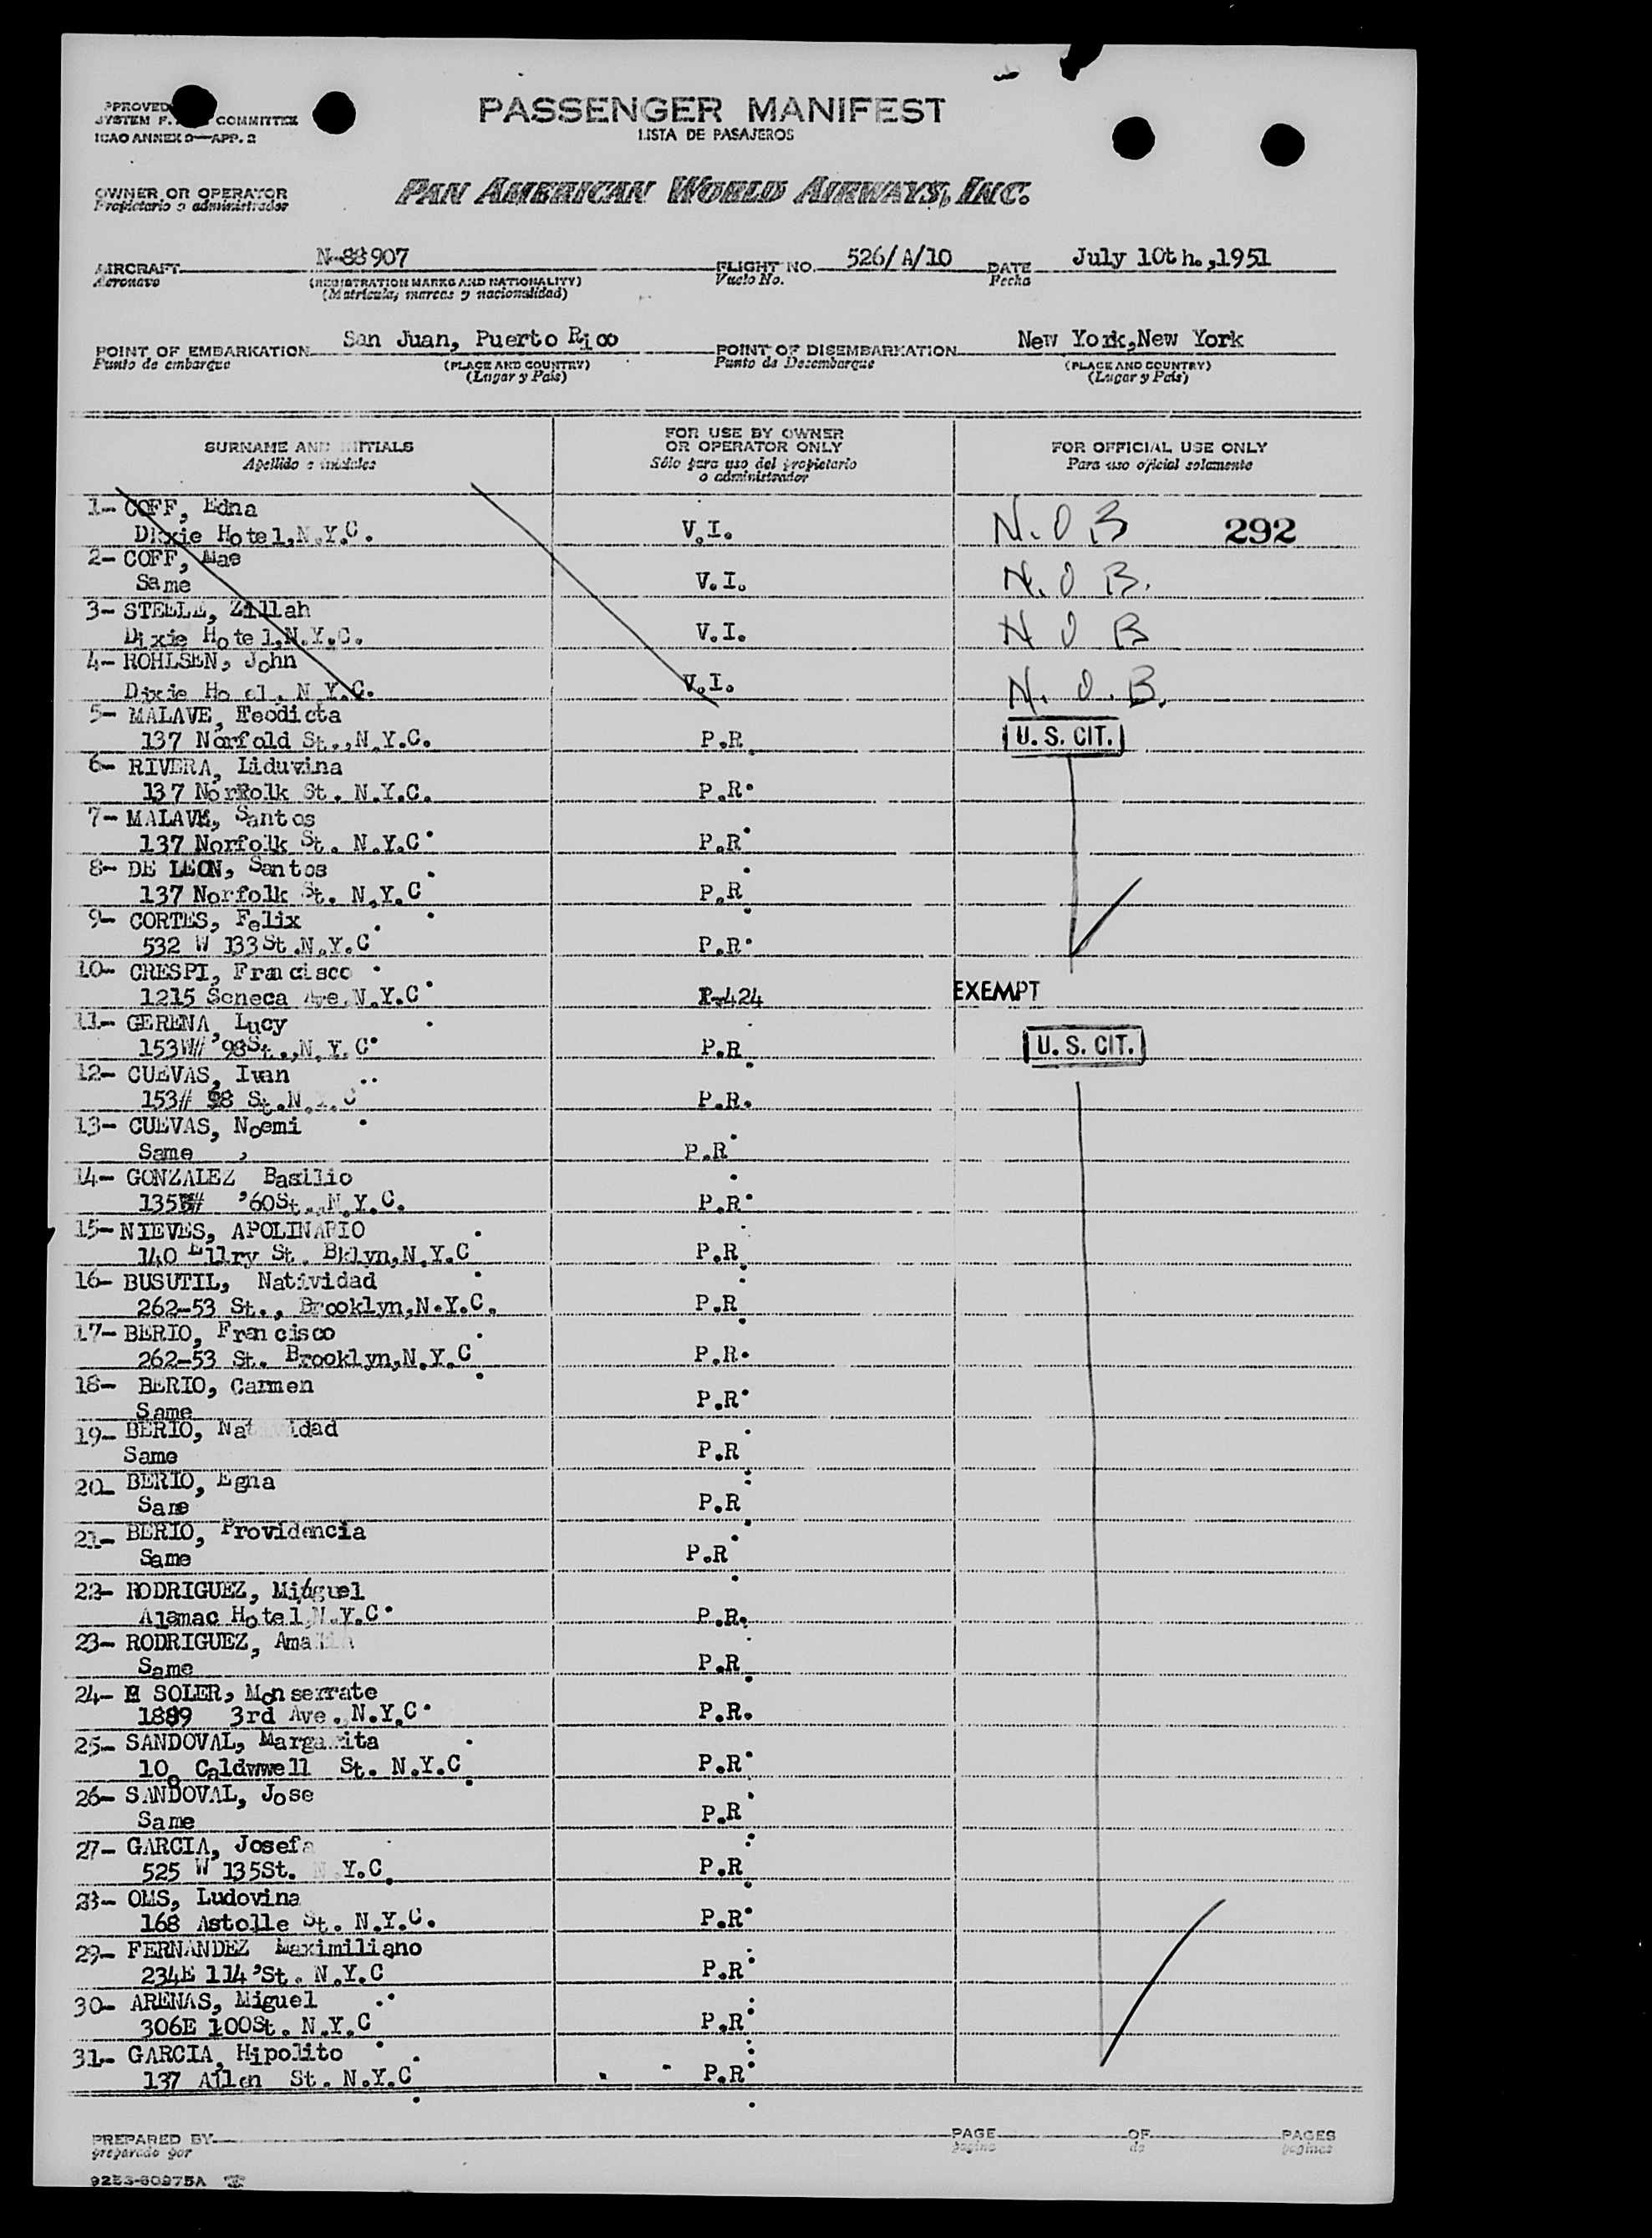 PPROVED
SYSTEM F. COMMITTEE
ICAO ANNEX 9—APP. 2
PASSENGER MANIFEST
LISTA DE PASAJEROS
OWNER OR OPERATOR
Propietario o administrador
PAN AMERICAN WORLD AIRWAYS, INC.
AIRCRAFT N-88907 FLIGHT NO. 526/A/10 DATE July 10th.,1951
Aeronave (REGISTRATION MARKS AND NATIONALITY) Vuelo No. Fecha
(Matrícula, marcas y nacionalidad)
POINT OF EMBARKATION San Juan, Puerto Rico POINT OF DISEMBARKATION New York,New York
Punto de embarque (PLACE AND COUNTRY) Punto de Desembarque (PLACE AND COUNTRY)
(Lugar y País) (Lugar y País)
SURNAME AND INITIALS FOR USE BY OWNER OR OPERATOR ONLY FOR OFFICIAL USE ONLY
Apellido e iniciales Sólo para uso del propietario o administrador Para uso oficial solamente
1- COFF, Edna
Dixie Hotel,N.Y.C. V.I. N.O B 292
2- COFF, Mae
Same V.I. N.O B.
3- STEELE, Zillah
Dixie Hotel,N.Y.C. V.I. N O B
4- ROHLSEN, John
Dixie Ho el. N.Y.C. V.I. N.O.B.
5- MALAVE, Feodicta
137 Norfold St.,N.Y.C. P.R. U.S. CIT.
6- RIVERA, Liduvina
137 Norfolk St. N.Y.C. P.R.
7- MALAVE, Santos
137 Norfolk St. N.Y.C. P.R.
8- DE LEON, Santos
137 Norfolk St. N.Y.C. P.R.
9- CORTES, Felix
532 W 133St.N.Y.C. P.R.
10- CRESPI, Francisco
1215 Seneca Ave.N.Y.C. I-424 EXEMPT
11- GERENA, Lucy
153W# '98St.,N.Y.C. P.R. U.S. CIT.
12- CUEVAS, Ivan
153# 98 St.N.Y.C P.R.
13- CUEVAS, Noemi
Same , P.R.
14- GONZALEZ Basilio
135E# '60St.,N.Y.C. P.R.
15- NIEVES, APOLINARIO
140 Ellry St. Bklyn,N.Y.C P.R.
16- BUSUTIL, Natividad
262-53 St., Brooklyn,N.Y.C. P.R.
17- BERIO, Francisco
262-53 St. Brooklyn,N.Y.C. P.R.
18- BERIO, Carmen
Same P.R.
19- BERIO, Natividad
Same P.R.
20- BERIO, Egna
Same P.R.
21- BERIO, Providencia
Same P.R.
22- RODRIGUEZ, Miguel
Alamac Hotel,N.Y.C. P.R.
23- RODRIGUEZ, Amalia
Same P.R.
24- SOLER, Monserrate
1889 3rd Ave.,N.Y.C. P.R.
25- SANDOVAL, Margarita
10 Caldwwell St. N.Y.C. P.R.
26- SANDOVAL, Jose
Same P.R.
27- GARCIA, Josefa
525 W 135St. N.Y.C. P.R.
28- OMS, Ludovina
168 Astolle St. N.Y.C. P.R.
29- FERNANDEZ Maximiliano
234E 114'St. N.Y.C P.R.
30- ARENAS, Miguel
306E 100St. N.Y.C P.R.
31- GARCIA, Hipolito
137 Allen St. N.Y.C. P.R.
PREPARED BY PAGE OF PAGES
preparado por página de páginas